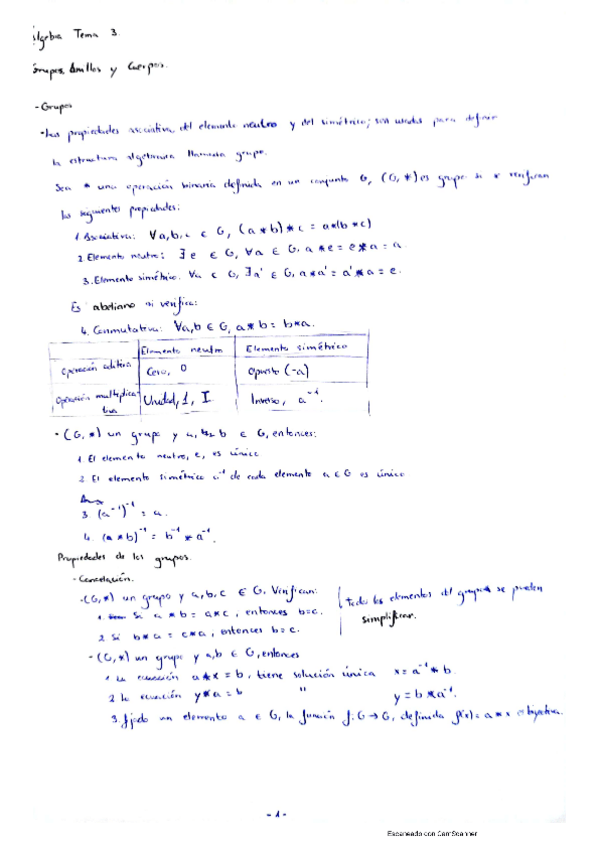 Álgebra Tema 3.
Grupos, Anillos y Cuerpos.
- Grupos
- Las propiedades asociativa, del elemento neutro y del simétrico; son usadas para definir
la estructura algebraica llamada grupo.
Sea * una operación binaria definida en un conjunto G, (G, *) es grupo si se verifican
las siguientes propiedades:
1. Asociativa: ∀a,b,c ∈ G, (a * b) * c = a*(b * c)
2. Elemento neutro: ∃ e ∈ G, ∀a ∈ G, a * e = e * a = a.
3. Elemento simétrico. ∀a ∈ G, ∃a' ∈ G, a * a' = a' * a = e.
Es abeliano si verifica:
4. Conmutativa: ∀a,b ∈ G, a * b = b * a.
Elemento neutro Elemento simétrico
Operación aditiva Cero, 0 Opuesto (-a)
Operación multiplicativa Unidad, 1, I Inverso, a⁻¹.
- (G, *) un grupo y a, b ∈ G, entonces:
1. El elemento neutro, e, es único
2. El elemento simétrico a⁻¹ de cada elemento a ∈ G es único
3. (a⁻¹)⁻¹ = a.
4. (a * b)⁻¹ = b⁻¹ * a⁻¹.
Propiedades de los grupos.
- Cancelación.
- (G, *) un grupo y a, b, c ∈ G. Verifican:
1. Si a * b = a * c, entonces b = c.
2. Si b * a = c * a, entonces b = c.
Todos los elementos del grupo se pueden
simplificar.
- (G, *) un grupo y a, b ∈ G, entonces
1. La ecuación a * x = b, tiene solución única x = a⁻¹ * b
2. la ecuación y * a = b " y = b * a⁻¹.
3. fijado un elemento a ∈ G, la función f: G → G, definida f(x) = a * x es biyectiva.
- 1 -
Escaneado con CamScanner